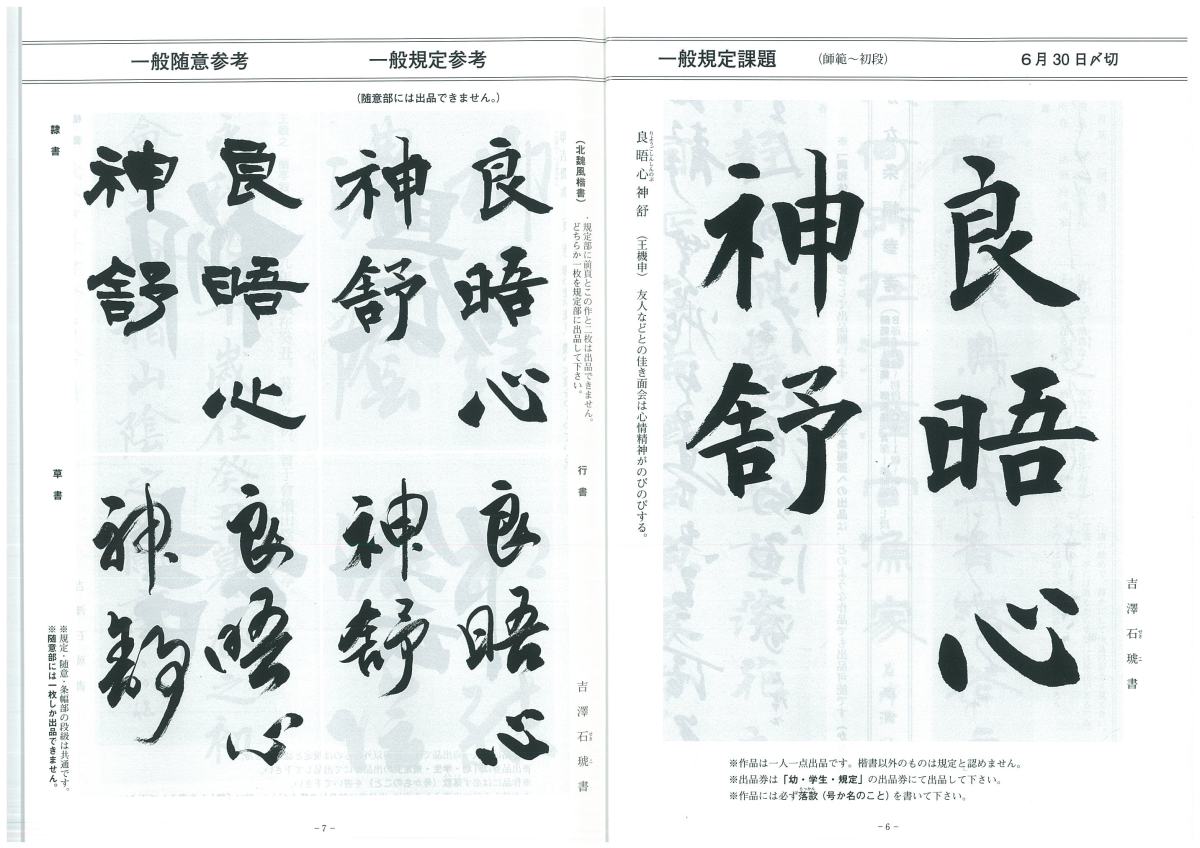 一般規定課題 (師範〜初段) 6月30日〆切
良晤心
神舒
良晤心神舒 (王機申) 友人などとの佳き面会は心情精神がのびのびする。
りようごこころしんのぶ
吉澤石琥書
せき こ
※作品は一人一点出品です。楷書以外のものは規定と認めません。
※出品券は「幼・学生・規定」の出品券にて出品して下さい。
※作品には必ず落款(号か名のこと)を書いて下さい。
らっかん
−6−
一般規定参考
(随意部には出品できません。)
(北魏風楷書)
・規定部に前頁とこの作と二枚は出品できません。
どちらか一枚を規定部に出品して下さい。
良晤心
神舒
行書
良晤心
神舒
吉澤石琥書
せき こ
一般随意参考
隷書
良晤心
神舒
草書
良晤心
神舒
※規定・随意・条幅部の段級は共通です。
※随意部には一枚しか出品できません。
−7−